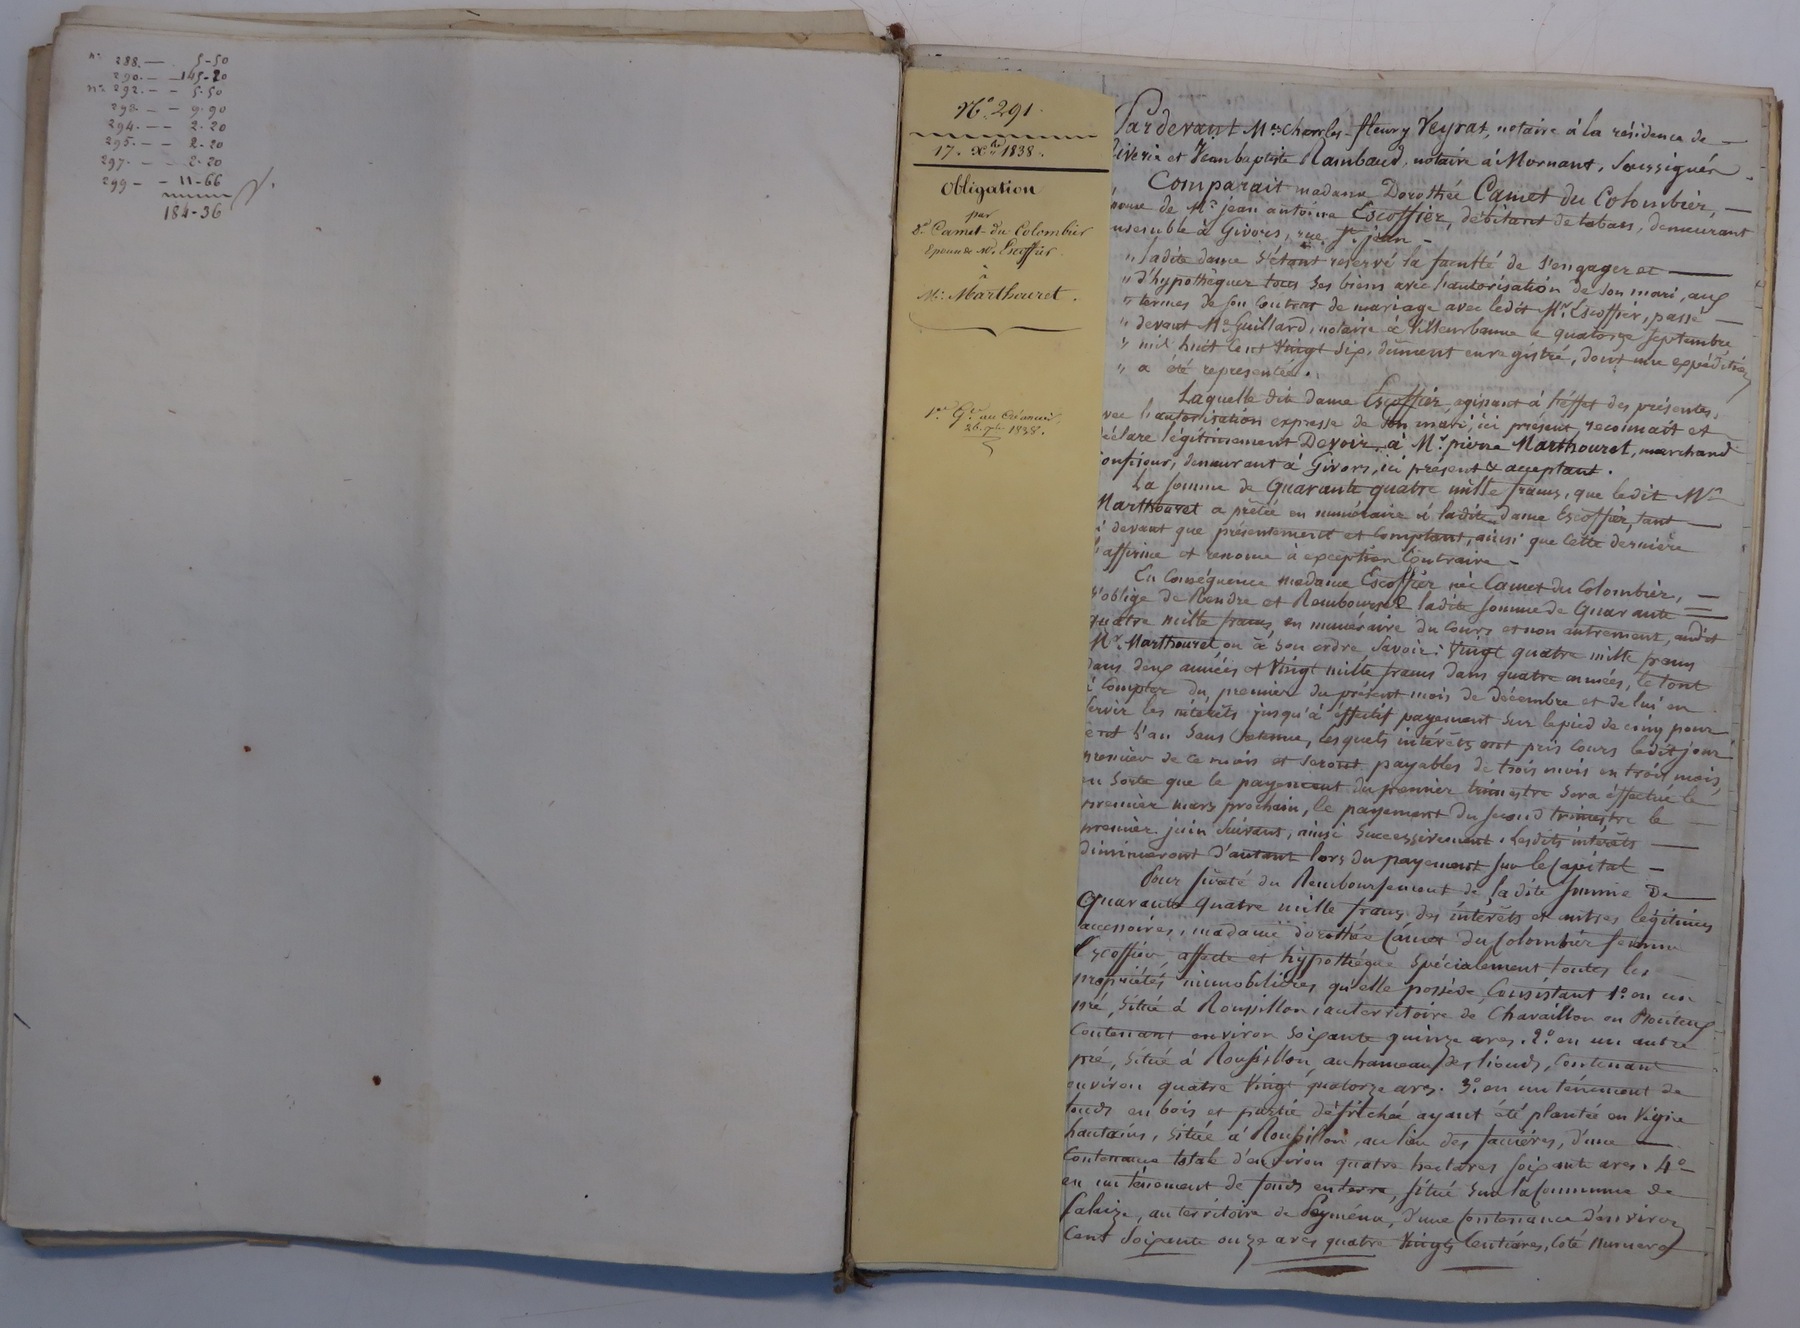 n° 288. — 5-50
290. — 145-20
n° 292. — 5-50
293 — 9-90
294. — 2-20
295. — 2-20
297. — 2-20
299 — 11-66
184-36
N° 291.
17. Xbre 1838.
Obligation
par
De Camet du Colombier
Epouse Mr. Escoffier
à
Mr. Marthouret.
1re Gr. au Créancier
26. Xbre 1838.
Pardevant Mes Charles-fleury Veyrat, notaire à la résidence de
Givors et Jean baptiste Rambaud, notaire à Mornant, soussignés
Comparait madame Dorothée Camet du Colombier,
épouse de Mr jean antoine Escoffier, débitant de tabacs, demeurant
ensemble à Givors, rue St jean —
" ladite dame s'étant reservé la faculté de s'engager et
" d'hypothéquer tous ses biens avec l'autorisation de son mari, aux
" termes de son contrat de mariage avec ledit Mr. Escoffier, passé
" devant Me Guillard, notaire à Villeurbanne le quatorze septembre
" mil huit cent vingt six, dûment enregistré, dont une expédition
" a été representée.
Laquelle dite dame Escoffier, agissant à l'éffet des présentes,
avec l'autorisation expresse de son mari, ici présent, reconnait et
déclare légitimement Devoir, à Mr. pierre Marthouret, marchand
confiseur, demeurant à Givors, ici présent & acceptant.
La somme de Quarante quatre mille francs, que ledit Mr
Marthouret a prêtée en numéraire à ladite dame Escoffier, tant
ci devant que présentement et comptant, ainsi que cette dernière
l'affirme et renonce à exception contraire —
En conséquence madame Escoffier née Camet du Colombier,
s'oblige de Rendre et Rembourser ladite somme de Quarante
quatre mille francs, en numéraire du cours et non autrement, audit
Mr. Marthouret ou à son ordre savoir: Vingt quatre mille francs
dans deux années et Vingt mille francs dans quatre années, le tout
à compter du premier du présent mois de décembre et de lui en
servir les intérêts jusqu'à éffectif payement sur le pied de cinq pour
cent l'an sans retenue, lesquels intérêts ont pris cours ledit jour
premier de ce mois et seront payables de trois mois en trois mois,
en sorte que le payement du premier trimestre sera éffectué le
premier mars prochain, le payement du second trimestre le
premier juin suivant, ainsi successivement. Lesdits intérêts
diminueront d'autant lors du payement sur le capital —
Pour sureté du Remboursement de ladite somme De
Quarante quatre mille francs des intérêts et autres légitimes
accessoires, madame dorothée Camet du Colombier femme
Escoffier, affecte et hypothéque spécialement toutes les
propriétés immobilières qu'elle possède, Consistant 1°. en un
pré, situé à Roussillon, au territoire de Chavaillon ou
Contenant environ soixante quinze ares. 2°. en un autre
pré, situé à Roussillon, au hameau des, Contenant
environ quatre Vingt quatorze ares. 3°. en un tènement de
fonds en bois et partie défrichée ayant été plantée en Vigne
hautains, située à Roussillon, au lieu des, d'une
Contenance totale d'environ quatre hectares soixante ares. 4°
en un tènement de fonds en terre, situé sur la Commune de
Salaize, au térritoire de, d'une Contenance d'environ
Cent soixante onze ares quatre Vingts Centiares, Coté numero